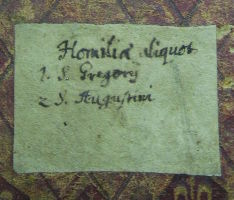 Homiliæ aliquot
1. S. Gregorij
2 S. Augustini